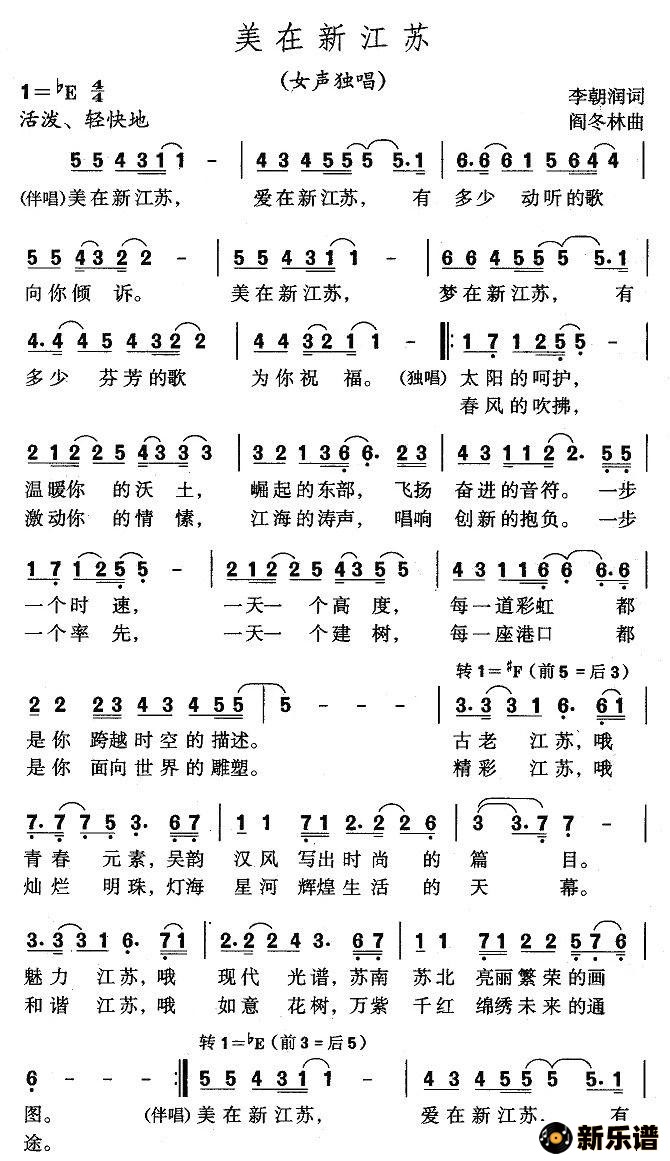 美在新江苏
(女声独唱)
1=♭E 4/4
李朝润词
活泼、轻快地
阎冬林曲
5 5 4 3 1 1 1 - | 4 3 4 5 5 5 5 5. 1 | 6. 6 6 1 5 6 4 4
(伴唱)美在新江苏, 爱在新江苏, 有 多少 动听的歌
5 5 4 3 2 2 2 - | 5 5 4 3 1 1 1 - | 6 6 4 5 5 5 5. 1
向你倾 诉。 美在新江苏, 梦在新江苏, 有
4. 4 4 5 4 3 2 2 | 3 4 3 2 1 1 - ‖: 1 7 1 2 5 5 -
多少 芬芳的歌 为你祝 福。 (独唱) 太阳的呵护,
春风的吹拂,
2 1 2 2 5 4 3 3 3 | 3 2 1 1 3 6 6. 2 3 | 4 3 1 1 2 2. 5 5
温暖你 的沃 土, 崛起的东部, 飞扬 奋进的音符。 一步
激动你 的情 愫, 江海的涛声, 唱响 创新的抱负。 一步
1 7 1 2 5 5 - | 2 1 2 2 5 4 3 5 5 | 4 3 1 1 6 6 6. 6
一个时 速, 一天一 个高 度, 每一道彩虹 都
一个率 先, 一天一 个建 树, 每一座港口 都
转1=♯F (前5=后3)
2 2 2 3 4 3 4 5 5 | 5 - - - | 3. 3 3 1 6. 6 1
是你 跨越时空的描述。 古老 江苏,哦
是你 面向世界的雕塑。 精彩 江苏,哦
7. 7 7 5 3. 6 7 | 1 1 7 1 2. 2 2 6 | 3 3. 7 7 -
青春 元素,吴韵 汉风 写出时尚 的 篇 目。
灿烂 明珠,灯海 星河 辉煌生活 的 天 幕。
3. 3 3 1 6. 7 1 | 2. 2 2 4 3 3. 6 7 | 1 1 7 1 2 2 5 7 6
魅力 江苏,哦 现代 光谱,苏南 苏北 亮丽繁荣的画
和谐 江苏,哦 如意 花树,万紫 千红 绵绣未来的通
转1=♭E (前3=后5)
6 - - - :‖ 5 5 4 3 1 1 1 - | 4 3 4 5 5 5 5. 1
图。 (伴唱)美在新江苏, 爱在新江苏. 有
途。
新乐谱